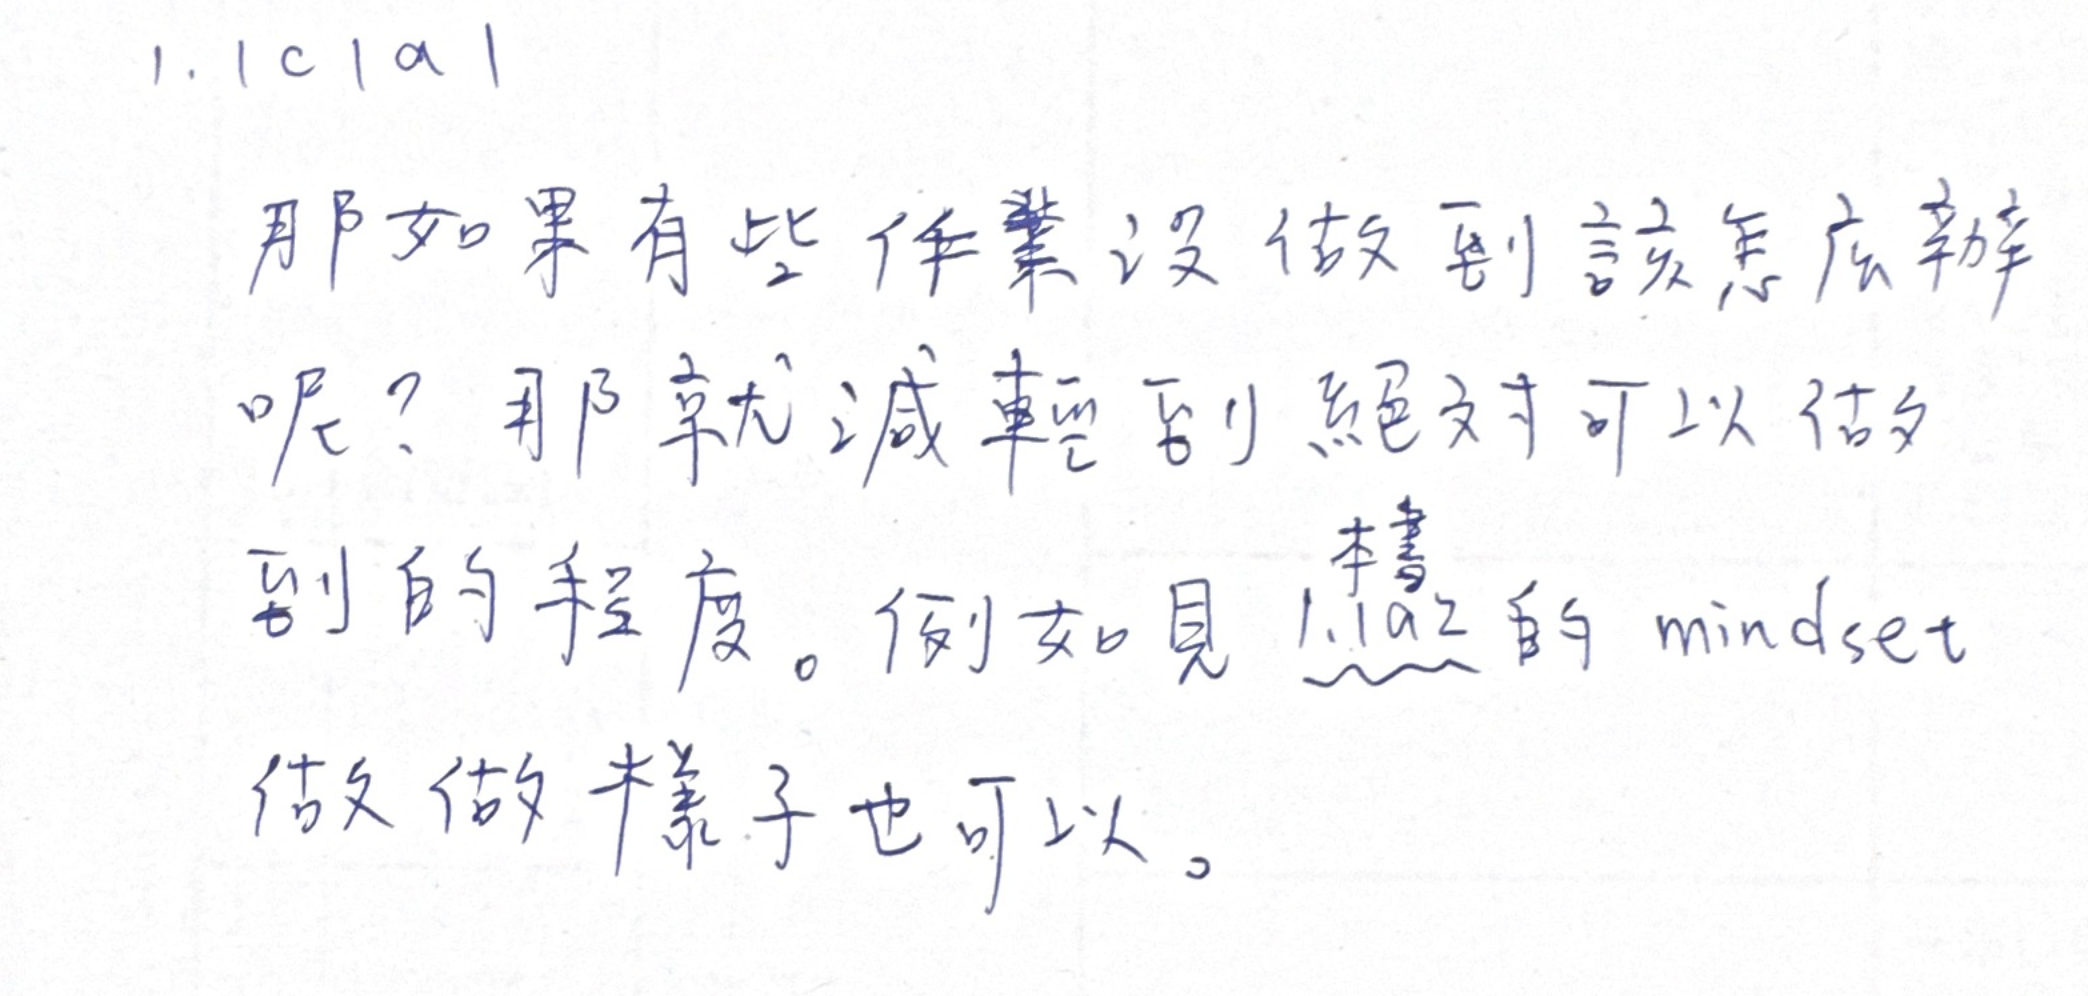 1.1c1a1
那如果有些作業没做到該怎庅辦
呢？那就減輕到絕対可以做
到的程度。例如見本書1.1a2的 mindset
做做樣子也可以。